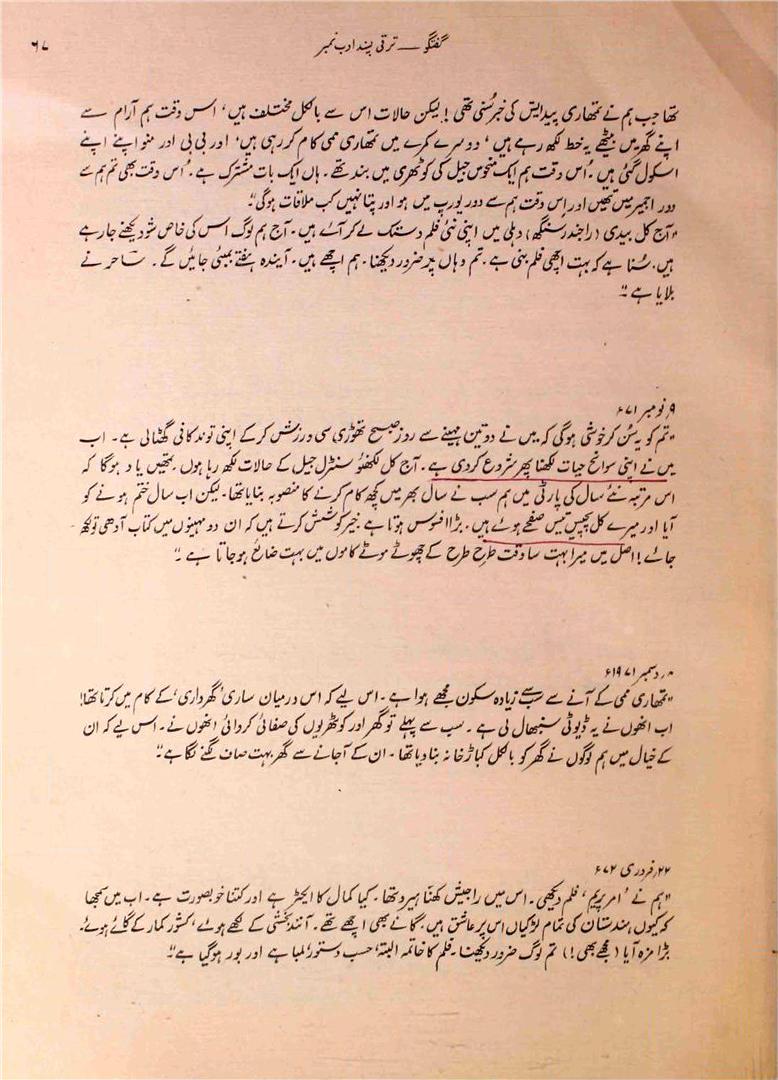 گفتگو — ترقی پسند ادب نمبر
۶۷
تھا جب ہم نے تمھاری پیدایش کی خبر سُنی تھی! لیکن حالات اس سے بالکل مختلف ہیں، اس وقت ہم آرام سے
اپنے گھر میں بیٹھے یہ خط لکھ رہے ہیں، دوسرے کمرے میں تمھاری ممی کام کر رہی ہیں، اور بی بی اور منو اپنے اپنے
اسکول گئی ہیں۔ اُس وقت ہم ایک منحوس جیل کی کوٹھری میں بند تھے۔ ہاں ایک بات مشترک ہے۔ اُس وقت بھی تم ہم سے
دور اجمیر میں تھیں اور اِس وقت ہم سے دور یورپ میں ہو اور پتا نہیں کب ملاقات ہوگی"۔
"آج کل بیدی (راجندر سنگھ) دہلی میں اپنی نئی فلم دستک لے کر آئے ہیں۔ آج ہم لوگ اس کی خاص شو دیکھنے جا رہے
ہیں۔ سُنا ہے کہ بہت اچھی فلم بنی ہے۔ تم وہاں پر ضرور دیکھنا۔ ہم اچھے ہیں۔ آیندہ ہفتے بمبئی جائیں گے۔ ساحر نے
بلایا ہے"۔
۹ نومبر ۶۷۱
"تم کو یہ سُن کر خوشی ہوگی کہ میں نے دو تین مہینے سے روز صبح تھوڑی سی ورزش کر کے اپنی توند کافی گھٹالی ہے۔ اب
میں نے اپنی سوانح حیات لکھنا پھر شروع کردی ہے۔ آج کل لکھنؤ سنٹرل جیل کے حالات لکھ رہا ہوں۔ تمھیں یاد ہوگا کہ
اس مرتبہ نئے سال کی پارٹی میں ہم سب نے سال بھر میں کچھ کام کرنے کا منصوبہ بنایا تھا۔ لیکن اب سال ختم ہونے کو
آیا اور میرے کل پچیس تیس صفحے ہوئے ہیں۔ بڑا افسوس ہوتا ہے خیر کوشش کرتے ہیں کہ ان دو مہینوں میں کتاب آدھی تو لکھ
جائے! اصل میں میرا بہت سا وقت طرح طرح کے چھوٹے موٹے کاموں میں بہت ضائع ہو جاتا ہے"۔
دسمبر ۱۹۷۱ء
"تمھاری ممی کے آنے سے سب سے زیادہ سکون مجھے ہوا ہے۔ اس لیے کہ اس درمیان ساری 'گھرداری' کے کام میں کرتا تھا!
اب انھوں نے یہ ڈیوٹی سنبھال لی ہے۔ سب سے پہلے تو گھر اور کوٹھریوں کی صفائی کروائی انھوں نے۔ اس لیے کہ ان
کے خیال میں ہم لوگوں نے گھر کو بالکل کباڑ خانہ بنا دیا تھا۔ ان کے آجانے سے گھر بہت صاف لگنے لگا ہے"۔
۲۲ فروری ۶۷۲
"ہم نے 'امر پریم' فلم دیکھی۔ اس میں راجیش کھنّا ہیرو تھا۔ کیا کمال کا ایکٹر ہے اور کتنا خوبصورت ہے۔ اب میں سمجھا
کہ کیوں ہندستان کی تمام لڑکیاں اس پر عاشق ہیں۔ گانے بھی اچھے تھے۔ آنند بخشی کے لکھے ہوئے، کشور کمار کے گائے ہوئے۔
بڑا مزہ آیا (مجھے بھی!) تم لوگ ضرور دیکھنا۔ فلم کا خاتمہ البتہ، حسب دستور، لمبا ہے اور بور ہو گیا ہے"۔